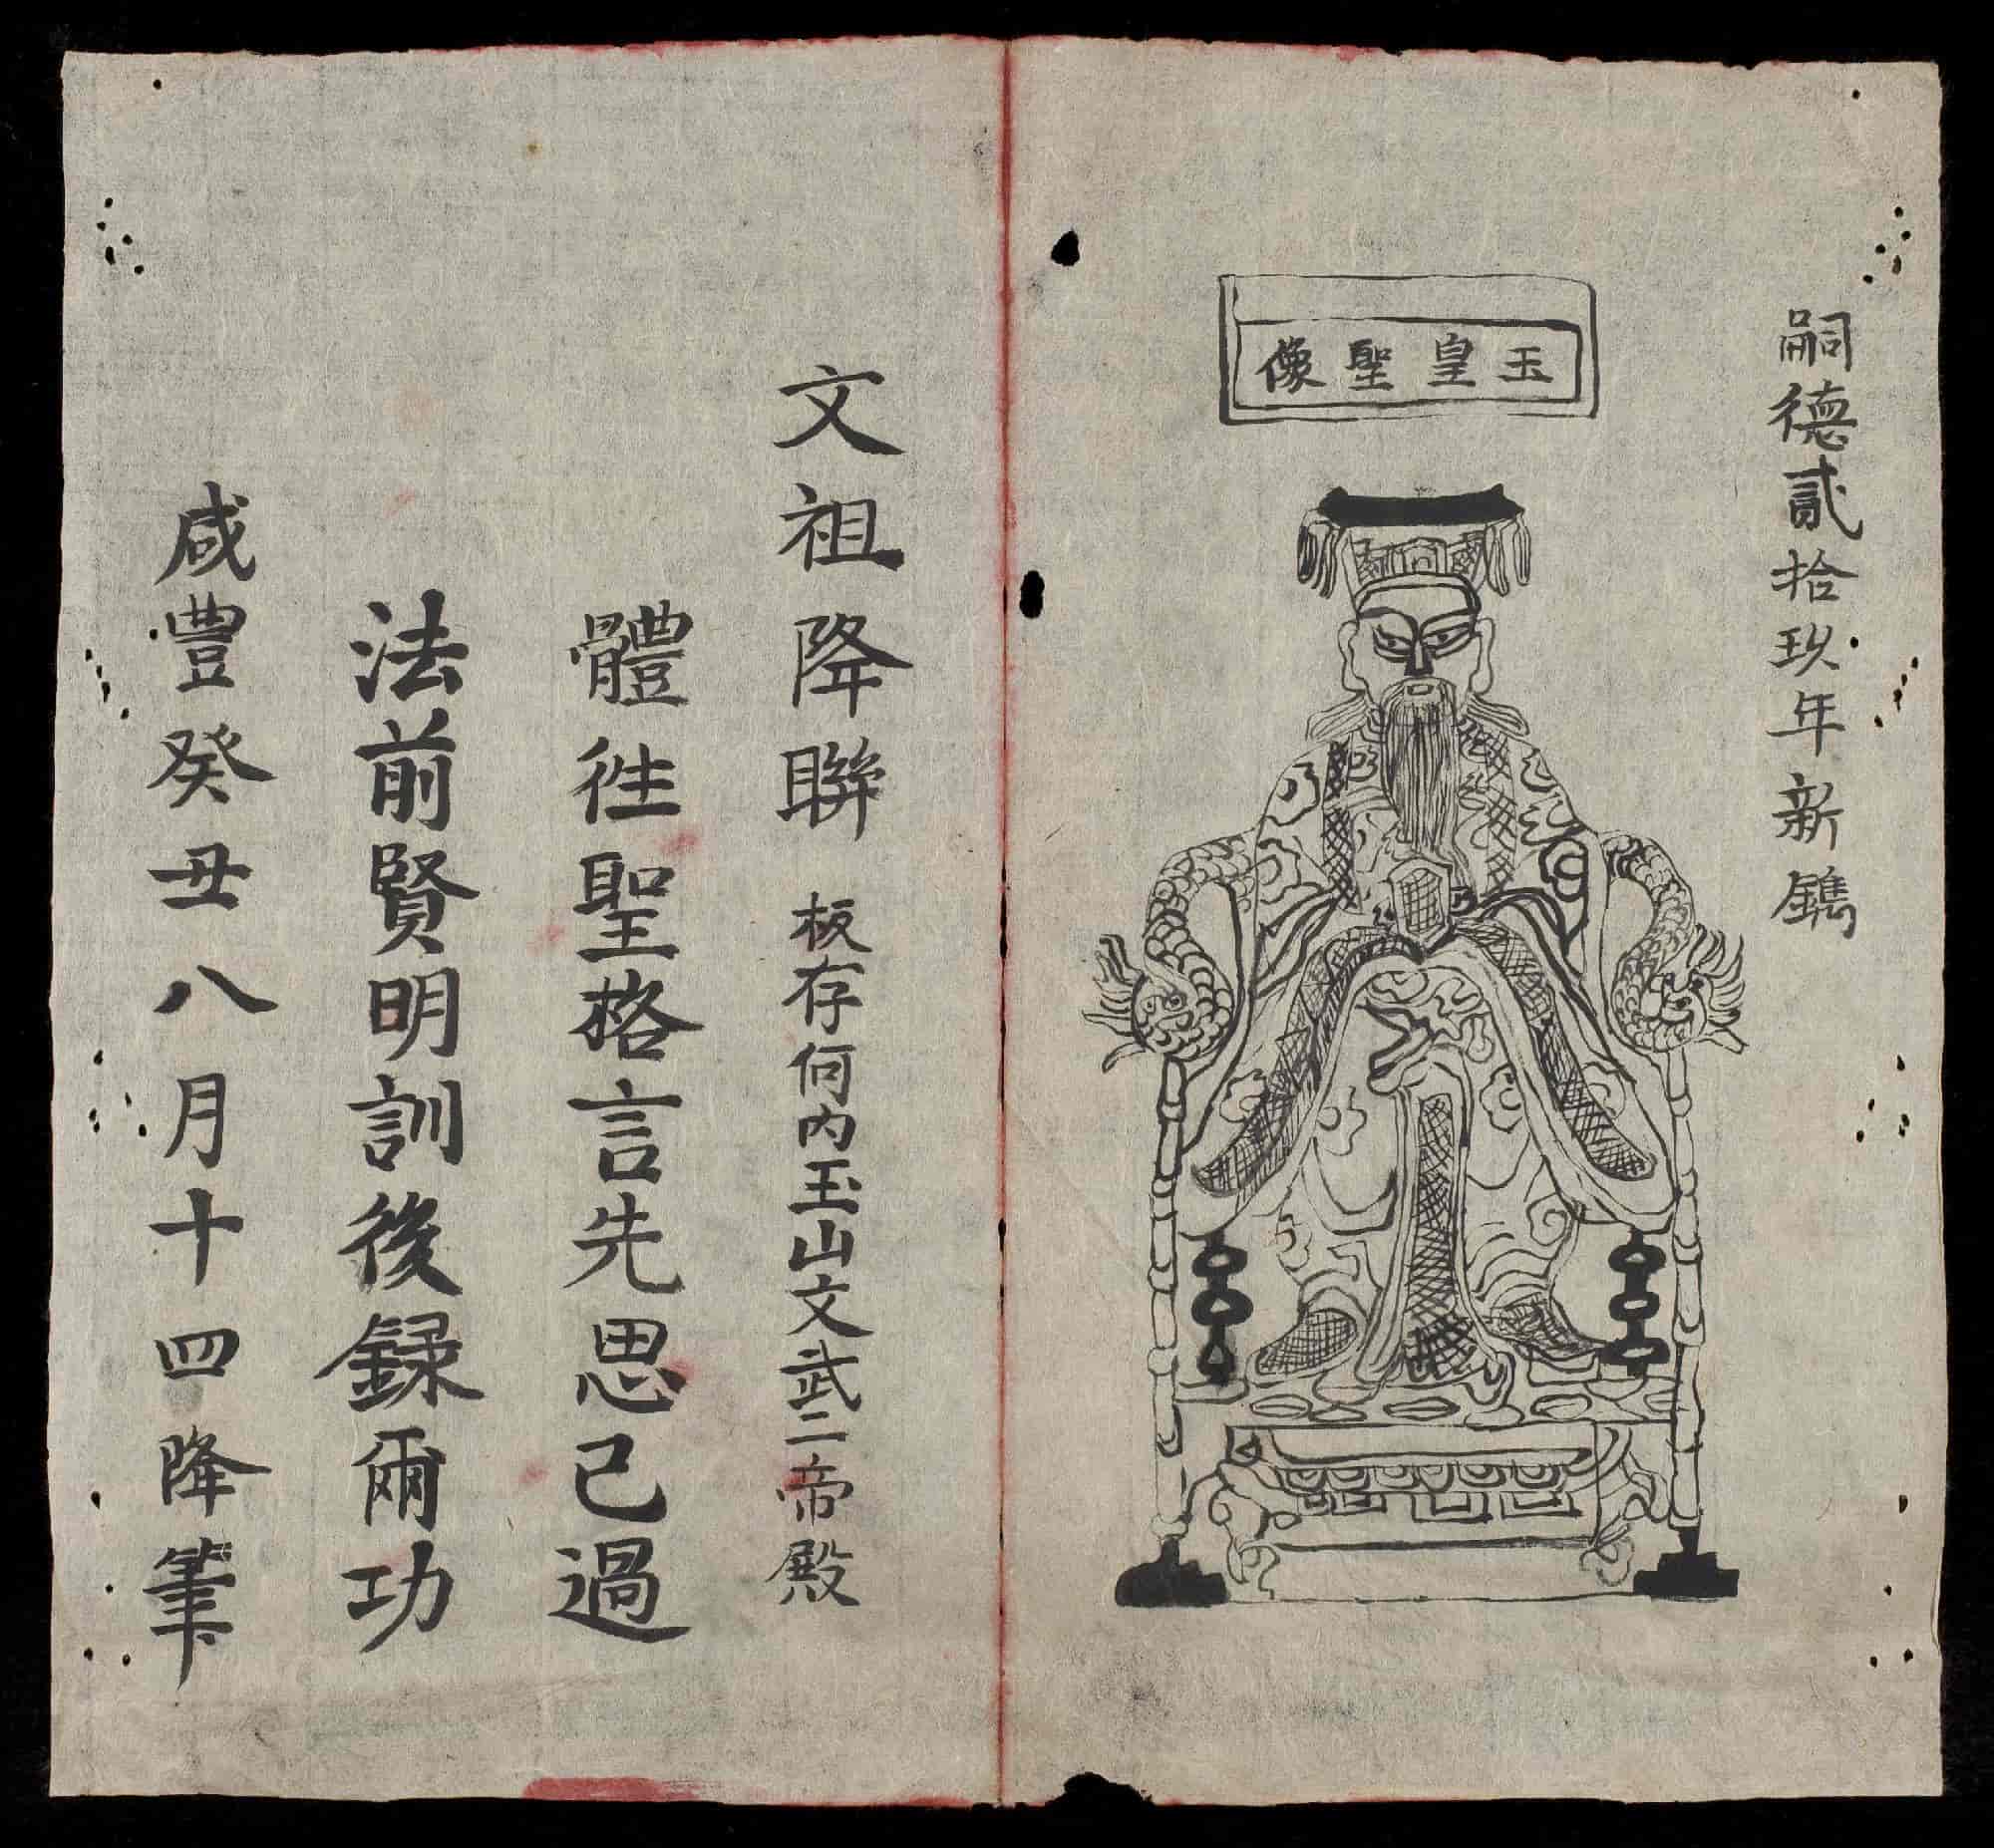 嗣德貳拾玖年新鐫
玉皇聖像
文祖降聯 板存何內玉山文武二帝殿
體徃聖格言先思己過
法前賢明訓後録爾功
咸豊癸丑八月十四降筆